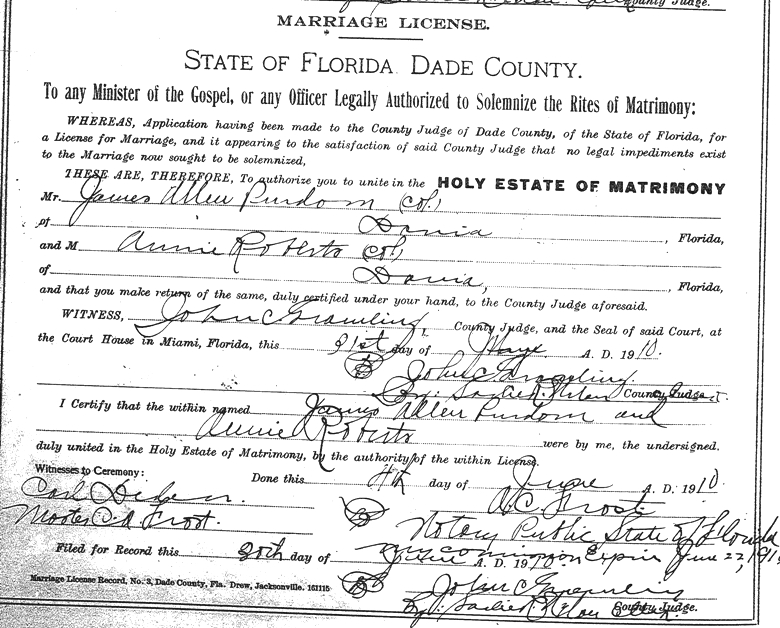 County Judge.
MARRIAGE LICENSE.
STATE OF FLORIDA DADE COUNTY.
To any Minister of the Gospel, or any Officer Legally Authorized to Solemnize the Rites of Matrimony:
WHEREAS, Application having been made to the County Judge of Dade County, of the State of Florida, for
a License for Marriage, and it appearing to the satisfaction of said County Judge that no legal impediments exist
to the Marriage now sought to be solemnized,
THESE ARE, THEREFORE, To authorize you to unite in the HOLY ESTATE OF MATRIMONY
Mr. James Allen Purdom (Col)
of Dania, Florida,
and M Annie Roberts (Col)
of Dania, Florida,
and that you make return of the same, duly certified under your hand, to the County Judge aforesaid.
WITNESS, John C. Gramling, County Judge, and the Seal of said Court, at
the Court House in Miami, Florida, this 31st day of May A. D. 1910.
John C. Gramling.
By: County Judge
I Certify that the within named James Allen Purdom and
Annie Roberts were by me, the undersigned,
duly united in the Holy Estate of Matrimony, by the authority of the within License.
Done this 4th day of June A. D. 1910
Witnesses to Ceremony: A.C. Frost
Carl
Frost. Notary Public State of Florida
My Commission Expires June 22, 191
Filed for Record this 20th day of June A. D. 1910
John C. Gramling
By: County Judge.
Marriage License Record, No. 3, Dade County, Fla. Drew, Jacksonville. 161115